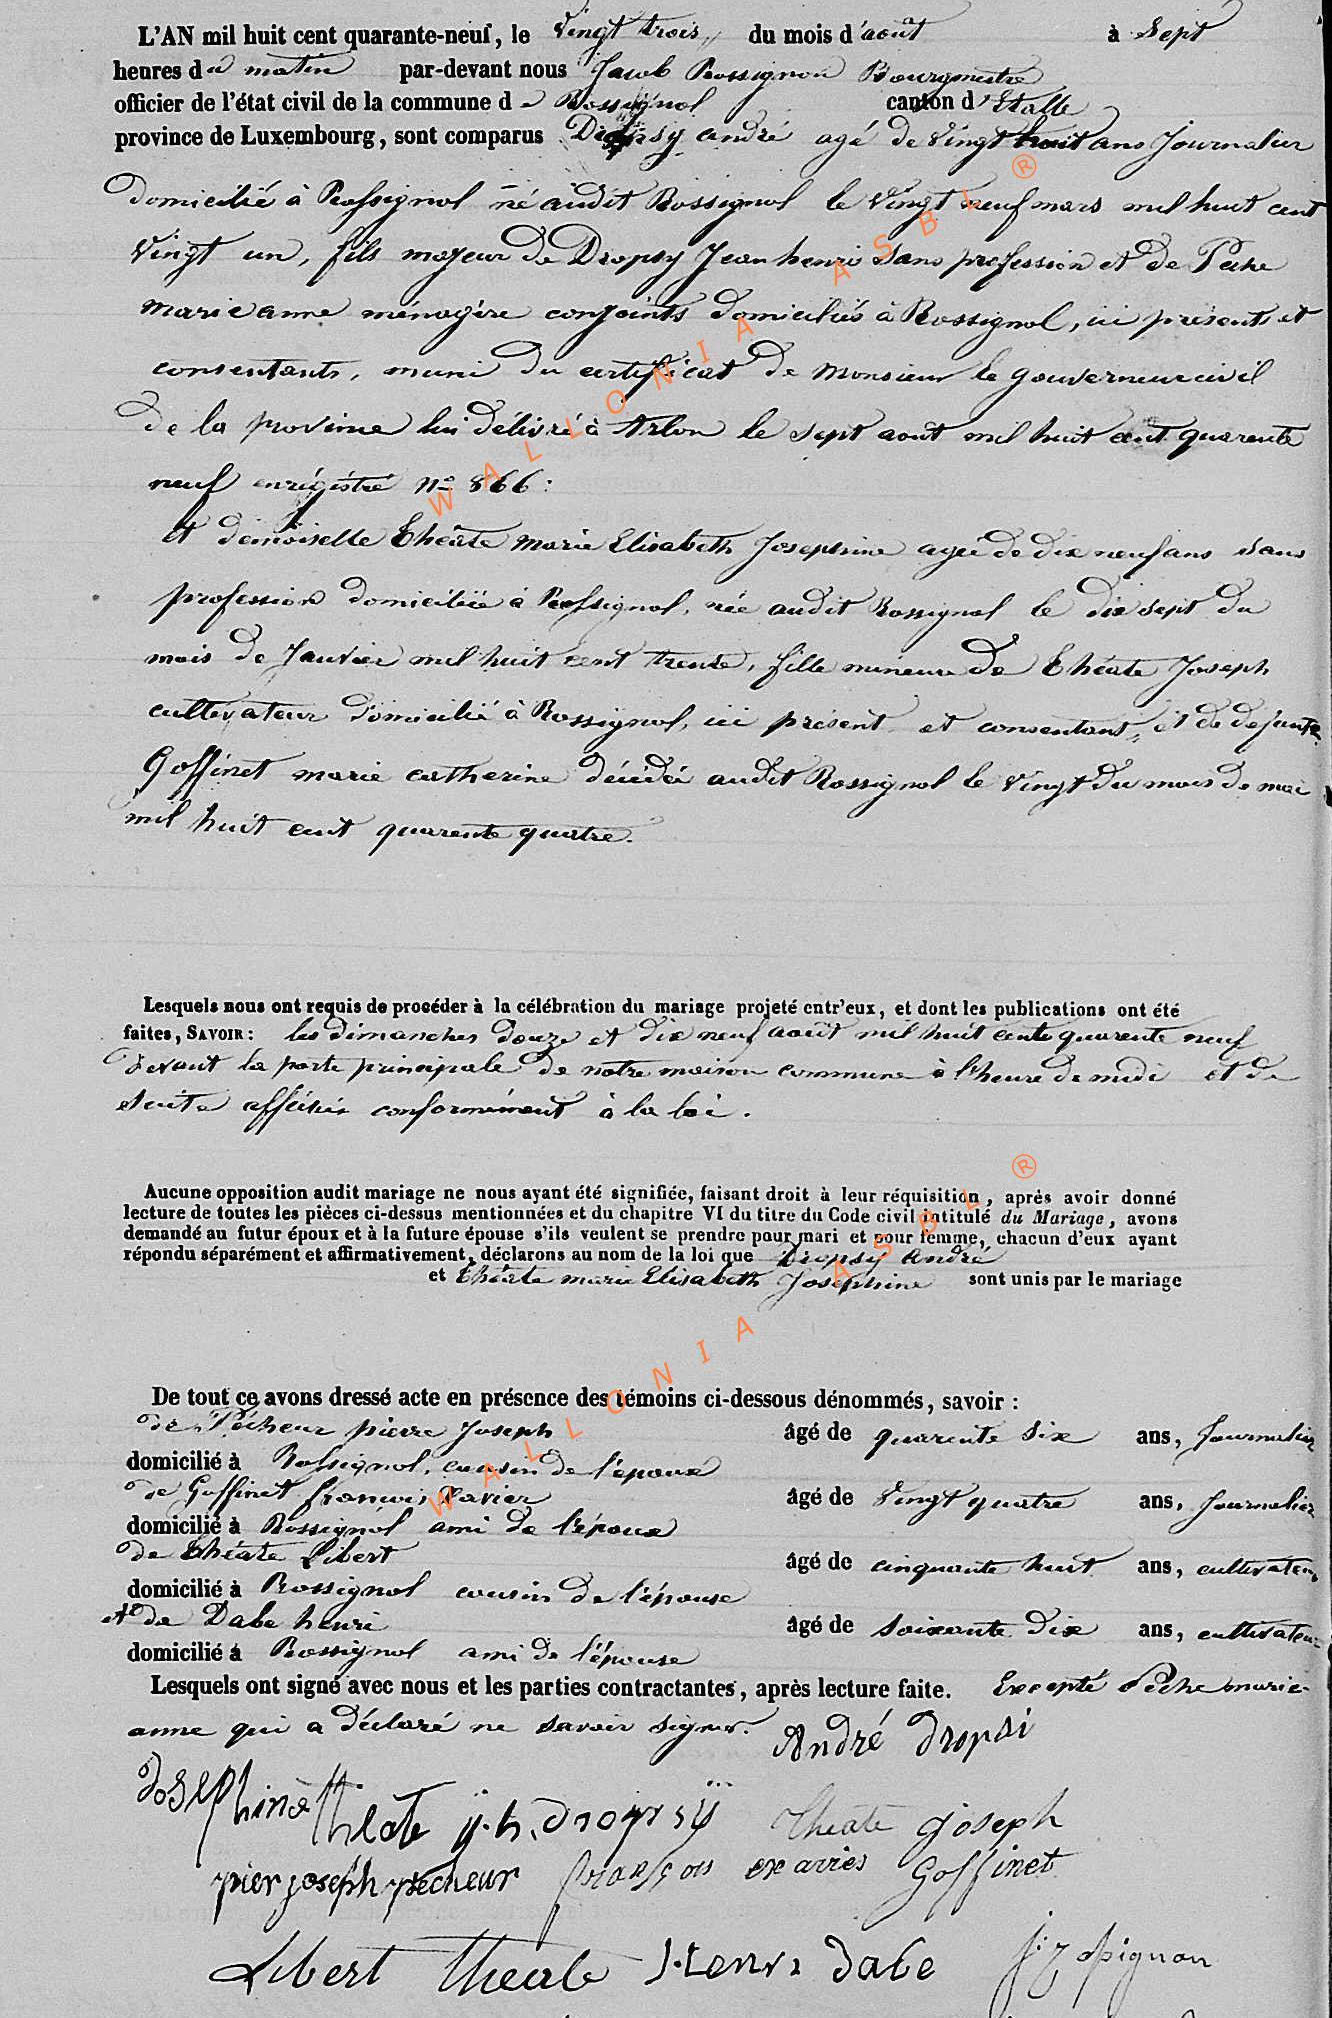 L'AN mil huit cent quarante-neuf, le Vingt trois, du mois d'août à Sept
heures du matin par-devant nous Jacob Rossignon Bourgmestre
officier de l'état civil de la commune de Rossignol canton d'Etalle
province de Luxembourg, sont comparus Dropsy andré agé de Vingt huit ans Journalier
domicilié à Rossignol né audit Rossignol le Vingt neuf mars mil huit cent
Vingt un, fils majeur de Dropsy Jean henri Sans profession et de Peche
marie anne ménagère conjoints domiciliés à Rossignol, ici présents et
consentants, muni du certificat de Monsieur le gouverneur civil
de la province lui délivré à Arlon le sept août mil huit cent quarente
neuf enrégistré No 866:
et demoiselle Théate Marie Elisabeth Josephine agée de dix neuf ans sans
profession domiciliée à Rossignol, née audit Rossignol le dix sept du
mois de Janvier mil huit cent trente, fille mineure de Théate Joseph
cultivateur domicilié à Rossignol, ici présent et consentant, et de defunte
Goffinet marie catherine décédée audit Rossignol le vingt du mois de mai
mil huit cent quarente quatre.
Lesquels nous ont requis de procéder à la célébration du mariage projeté entr'eux, et dont les publications ont été
faites, SAVOIR: les dimanches douze et dix neuf août mil huit cents quarente neuf
devant la porte principale de notre maison commune à l'heure de midi et de
Suite affichées conformément à la loi.
Aucune opposition audit mariage ne nous ayant été signifiée, faisant droit à leur réquisition, après avoir donné
lecture de toutes les pièces ci-dessus mentionnées et du chapitre VI du titre du Code civil intitulé du Mariage, avons
demandé au futur époux et à la future épouse s'ils veulent se prendre pour mari et pour femme, chacun d'eux ayant
répondu séparément et affirmativement, déclarons au nom de la loi que Dropsy André
et Théate marie Elisabeth Joséphine sont unis par le mariage
De tout ce avons dressé acte en présence des témoins ci-dessous dénommés, savoir:
de Pécheur pierre Joseph âgé de quarente Six ans, Journalier
domicilié à Rossignol, cousin de l'époux
de Goffinet francois Xavier âgé de Vingt quatre ans, Journalier
domicilié à Rossignol ami de l'époux
de Théate Libert âgé de cinquante huit ans, cultivateur
domicilié à Rossignol cousin de l'épouse
et de Dabe henri âgé de Soixante dix ans, cultivateur
domicilié à Rossignol ami de l'épouse
Lesquels ont signé avec nous et les parties contractantes, après lecture faite. Excepté Pèche marie-
anne qui a déclaré ne savoir signer. André dropsi
Josephine théate j.h. dropsy Theate joseph
pier joseph pecheur françois exavies Goffinet
Libert theate Henri dabe J. Rossignon
WALLONIA ASBL ®
WALLONIA ASBL ®